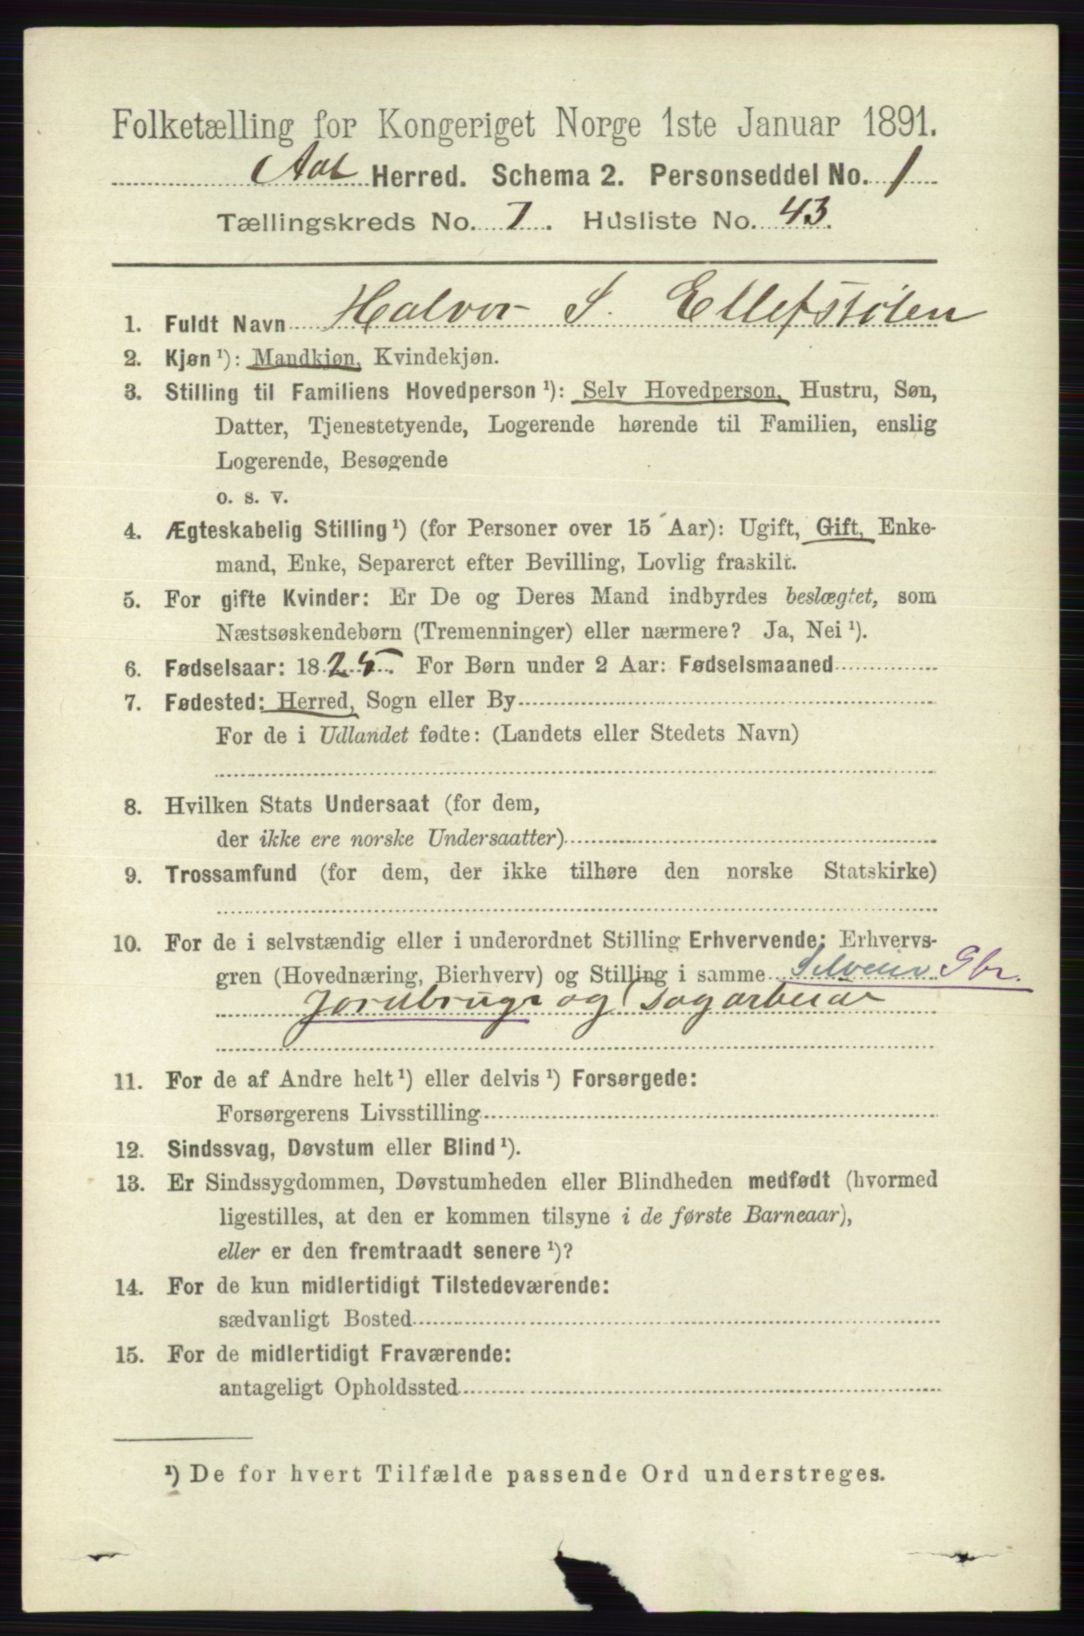 Folketælling for Kongeriget Norge 1ste Januar 1891.
Aal Herred. Schema 2. Personseddel No. 1
Tællingskreds No. 7. Husliste No. 43.
1. Fuldt Navn Halvor S. Ellefstølen
2. Kjøn ¹): Mandkjøn, Kvindekjøn.
3. Stilling til Familiens Hovedperson ¹): Selv Hovedperson, Hustru, Søn,
Datter, Tjenestetyende, Logerende hørende til Familien, enslig
Logerende, Besøgende
o. s. v.
4. Ægteskabelig Stilling ¹) (for Personer over 15 Aar): Ugift, Gift, Enke-
mand, Enke, Separeret efter Bevilling, Lovlig fraskilt.
5. For gifte Kvinder: Er De og Deres Mand indbyrdes beslægtet, som
Næstsøskendebørn (Tremenninger) eller nærmere? Ja, Nei ¹).
6. Fødselsaar: 1825. For Børn under 2 Aar: Fødselsmaaned
7. Fødested: Herred, Sogn eller By
For de i Udlandet fødte: (Landets eller Stedets Navn)
8. Hvilken Stats Undersaat (for dem,
der ikke ere norske Undersaatter)
9. Trossamfund (for dem, der ikke tilhøre den norske Statskirke)
10. For de i selvstændig eller i underordnet Stilling Erhvervende: Erhvervs-
gren (Hovednæring, Bierhverv) og Stilling i samme Selveier Gbr.
Jordbrug og Dagarbeide
11. For de af Andre helt ¹) eller delvis ¹) Forsørgede:
Forsørgerens Livsstilling
12. Sindssvag, Døvstum eller Blind ¹).
13. Er Sindssygdommen, Døvstumheden eller Blindheden medfødt (hvormed
ligestilles, at den er kommen tilsyne i de første Barneaar),
eller er den fremtraadt senere ¹)?
14. For de kun midlertidigt Tilstedeværende:
sædvanligt Bosted
15. For de midlertidigt Fraværende:
antageligt Opholdssted
¹) De for hvert Tilfælde passende Ord understreges.